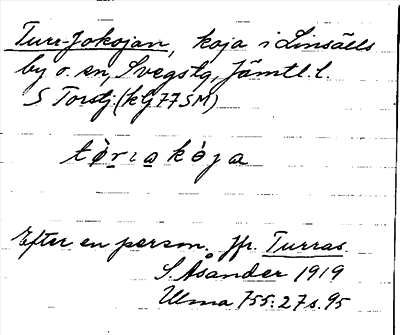 Turr-Jokojan, koja i Linsälls
by o. sn, Svegs tg, Jämtl. l.
S Torsj. (kG 77 SM)
tø̀rıa kòja
Efter en person. Jfr. Turras.
S. Åsånder 1919
Ulma 755:27 s. 95